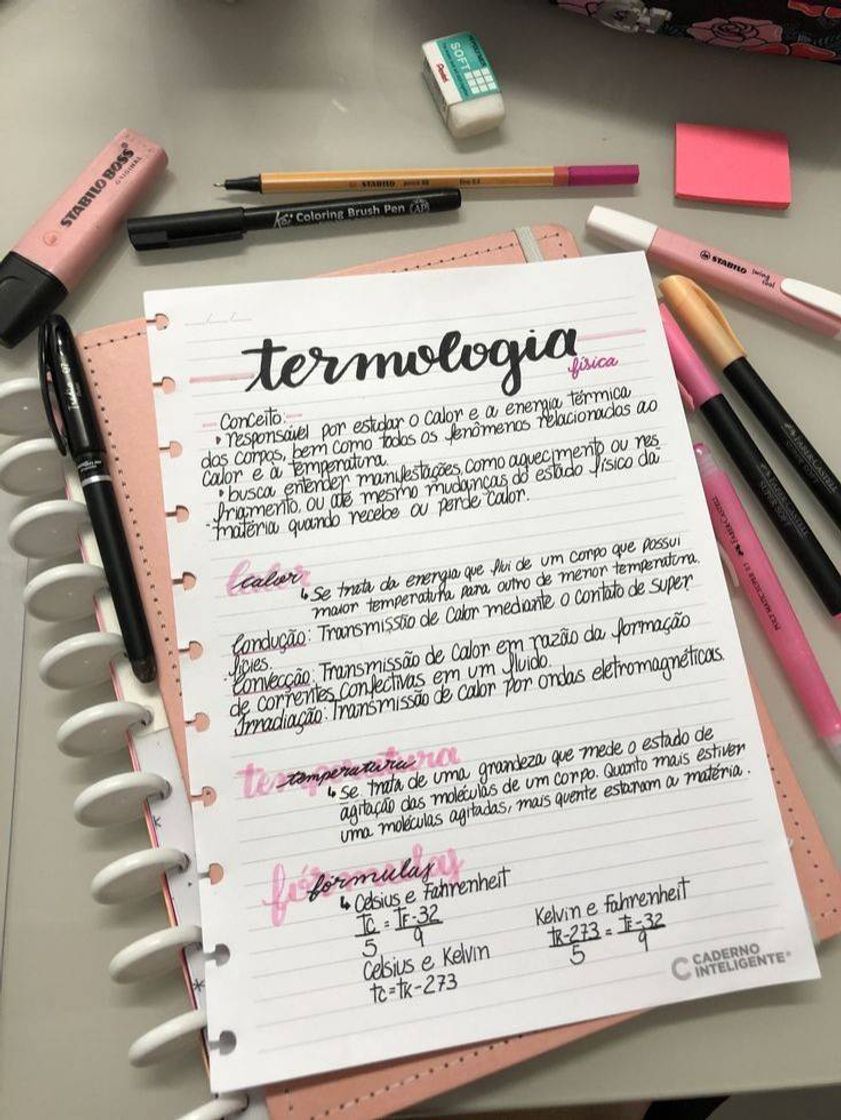 SOFT
Pentel
STABILO BOSS
ORIGINAL
STABILO point 88 fine 0.4
Koi Coloring Brush Pen AP
STABILO swing cool
termologia
física
Conceito:
• responsável por estudar o calor e a energia térmica
dos corpos, bem como todos os fenômenos relacionados ao
calor e à temperatura.
• busca entender manifestações, como aquecimento ou res
friamento, ou até mesmo mudanças do estado físico da
matéria quando recebe ou perde calor.
calor
calor
↳ Se trata da energia que flui de um corpo que possui
maior temperatura para outro de menor temperatura.
Condução: Transmissão de calor mediante o contato de super
fícies.
Convecção: Transmissão de calor em razão da formação
de correntes confectivas em um fluido.
Irradiação: Transmissão de calor por ondas eletromagnéticas.
temperatura
temperatura
↳ Se trata de uma grandeza que mede o estado de
agitação das moléculas de um corpo. Quanto mais estiver
uma moléculas agitadas, mais quente estaram a matéria.
fórmulas
fórmulas
↳ Celsius e Fahrenheit
Tc = TF-32
5 9
Celsius e Kelvin
tc=tk-273
Kelvin e Fahrenheit
tk-273 = tF-32
5 9
CADERNO
INTELIGENTE®
FABER-CASTELL